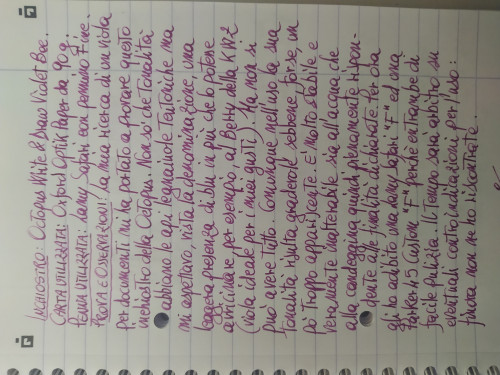 INCHIOSTRO: Octopus Write & Draw Violet Bee.
CARTA UTILIZZATA: Oxford Optik Paper da 90 g.
PENNA UTILIZZATA: Lamy Safari con pennino Fine.
PROVA E OSSERVAZIONI: La mia ricerca di un viola
per documenti mi ha portato a provare questo
inchiostro della Octopus. Non so che tonalità
abbiano le api legnaiole Teutoniche ma
mi aspettavo, vista la denominazione, una
leggera presenza di blu in più che lo potesse
avvicinare per esempio al Berry della KWZ
(viola ideale per i miei gusti). Ma non si
può avere tutto. Comunque nell'uso la sua
tonalità risulta gradevole sebbene, forse, un
po' troppo appariscente. E' molto stabile e
veramente inalterabile sia all'acqua che
alla candeggina quindi pienamente rispon-
dente alle finalità dichiarate. Per ora
gli ho adibito una Lamy Safari "F" ed una
Parker 45 Custom "F" perché entrambe di
facile pulizia. Il tempo sarà arbitro su
eventuali controindicazioni per l'uso:
finora non ne ho riscontrate.